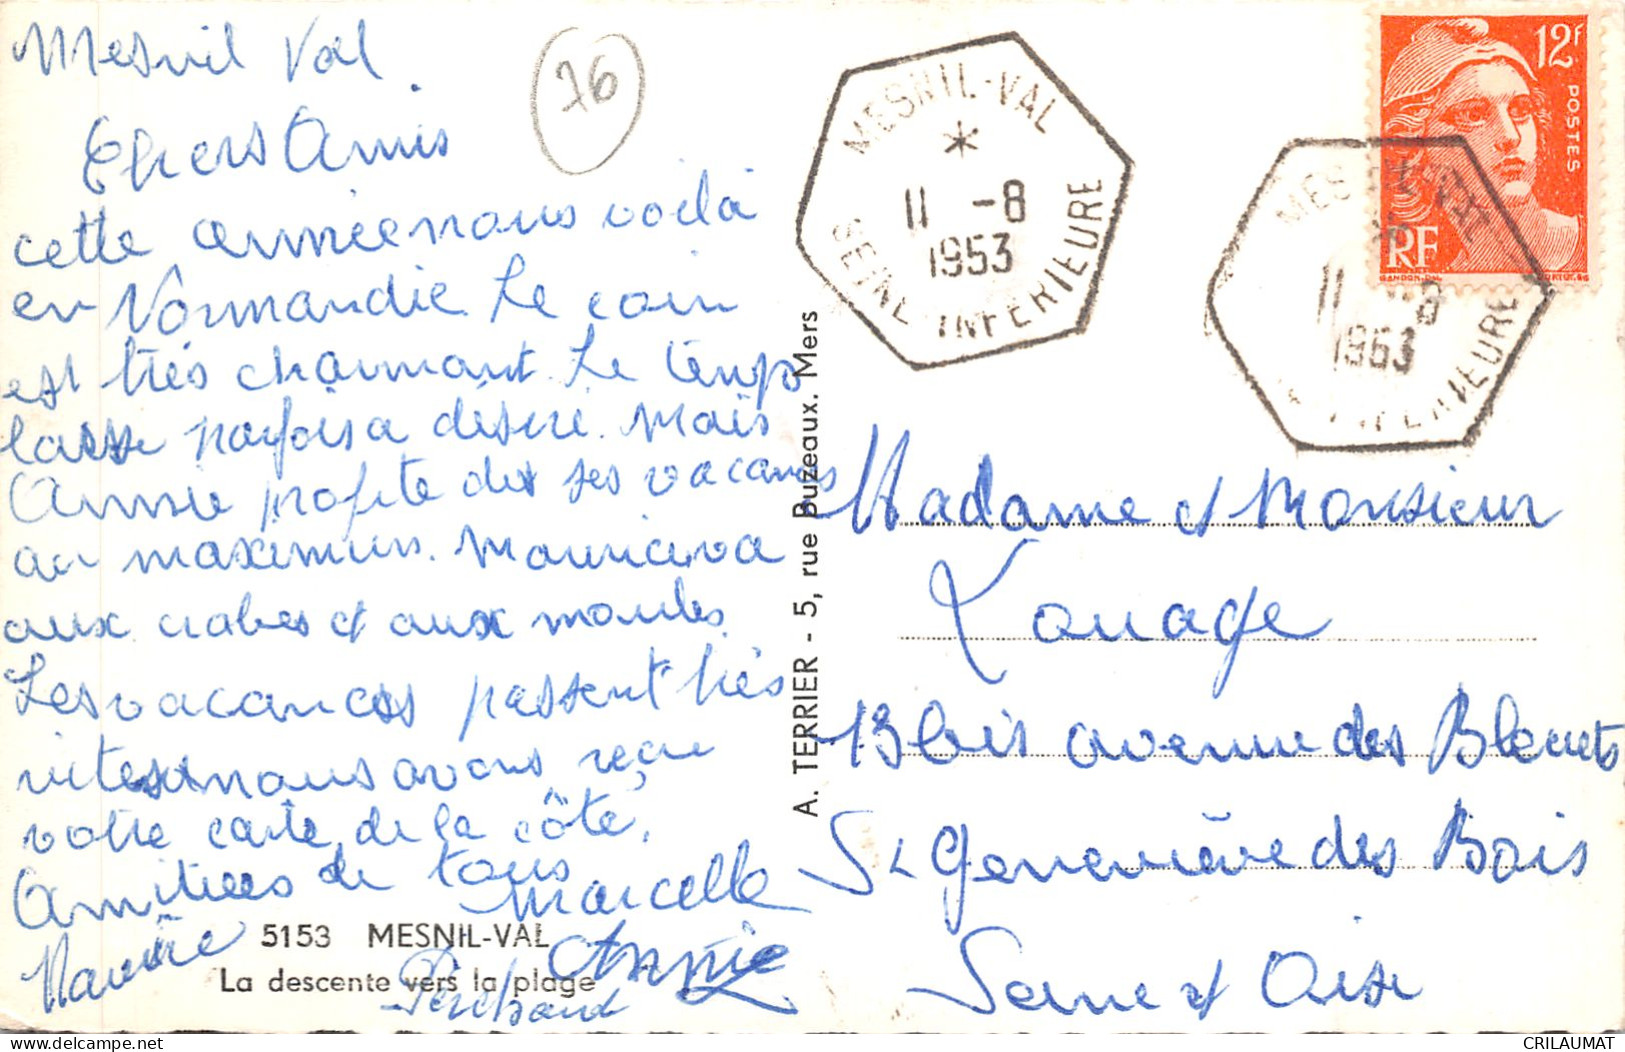 Mesnil Val.
76
Chers Amis
cette année nous voila
en Normandie. Le coin
est très charmant. Le temps
laisse parfois a desiré. Mais
Annie profite de ses vacances
au maximum. Maurice va
aux crabes et aux moules.
Les vacances passent très
vites nous avons reçu
votre carte de la côte.
Amitiées de tous
Marcelle
Maurice
Annie
5153 MESNIL-VAL
La descente vers la plage
A. TERRIER - 5, rue Buzeaux. Mers
MESNIL-VAL
*
11 -8
1953
SEINE INFERIEURE
MESNIL VAL
11 -8
1953
INFERIEURE
12F
POSTES
RF
GANDON.DEL
Madame et Monsieur
Louage
13 bis avenue des Bleuets
St Geneviève des Bois
Seine et Oise
www.delcampe.net
CRILAUMAT